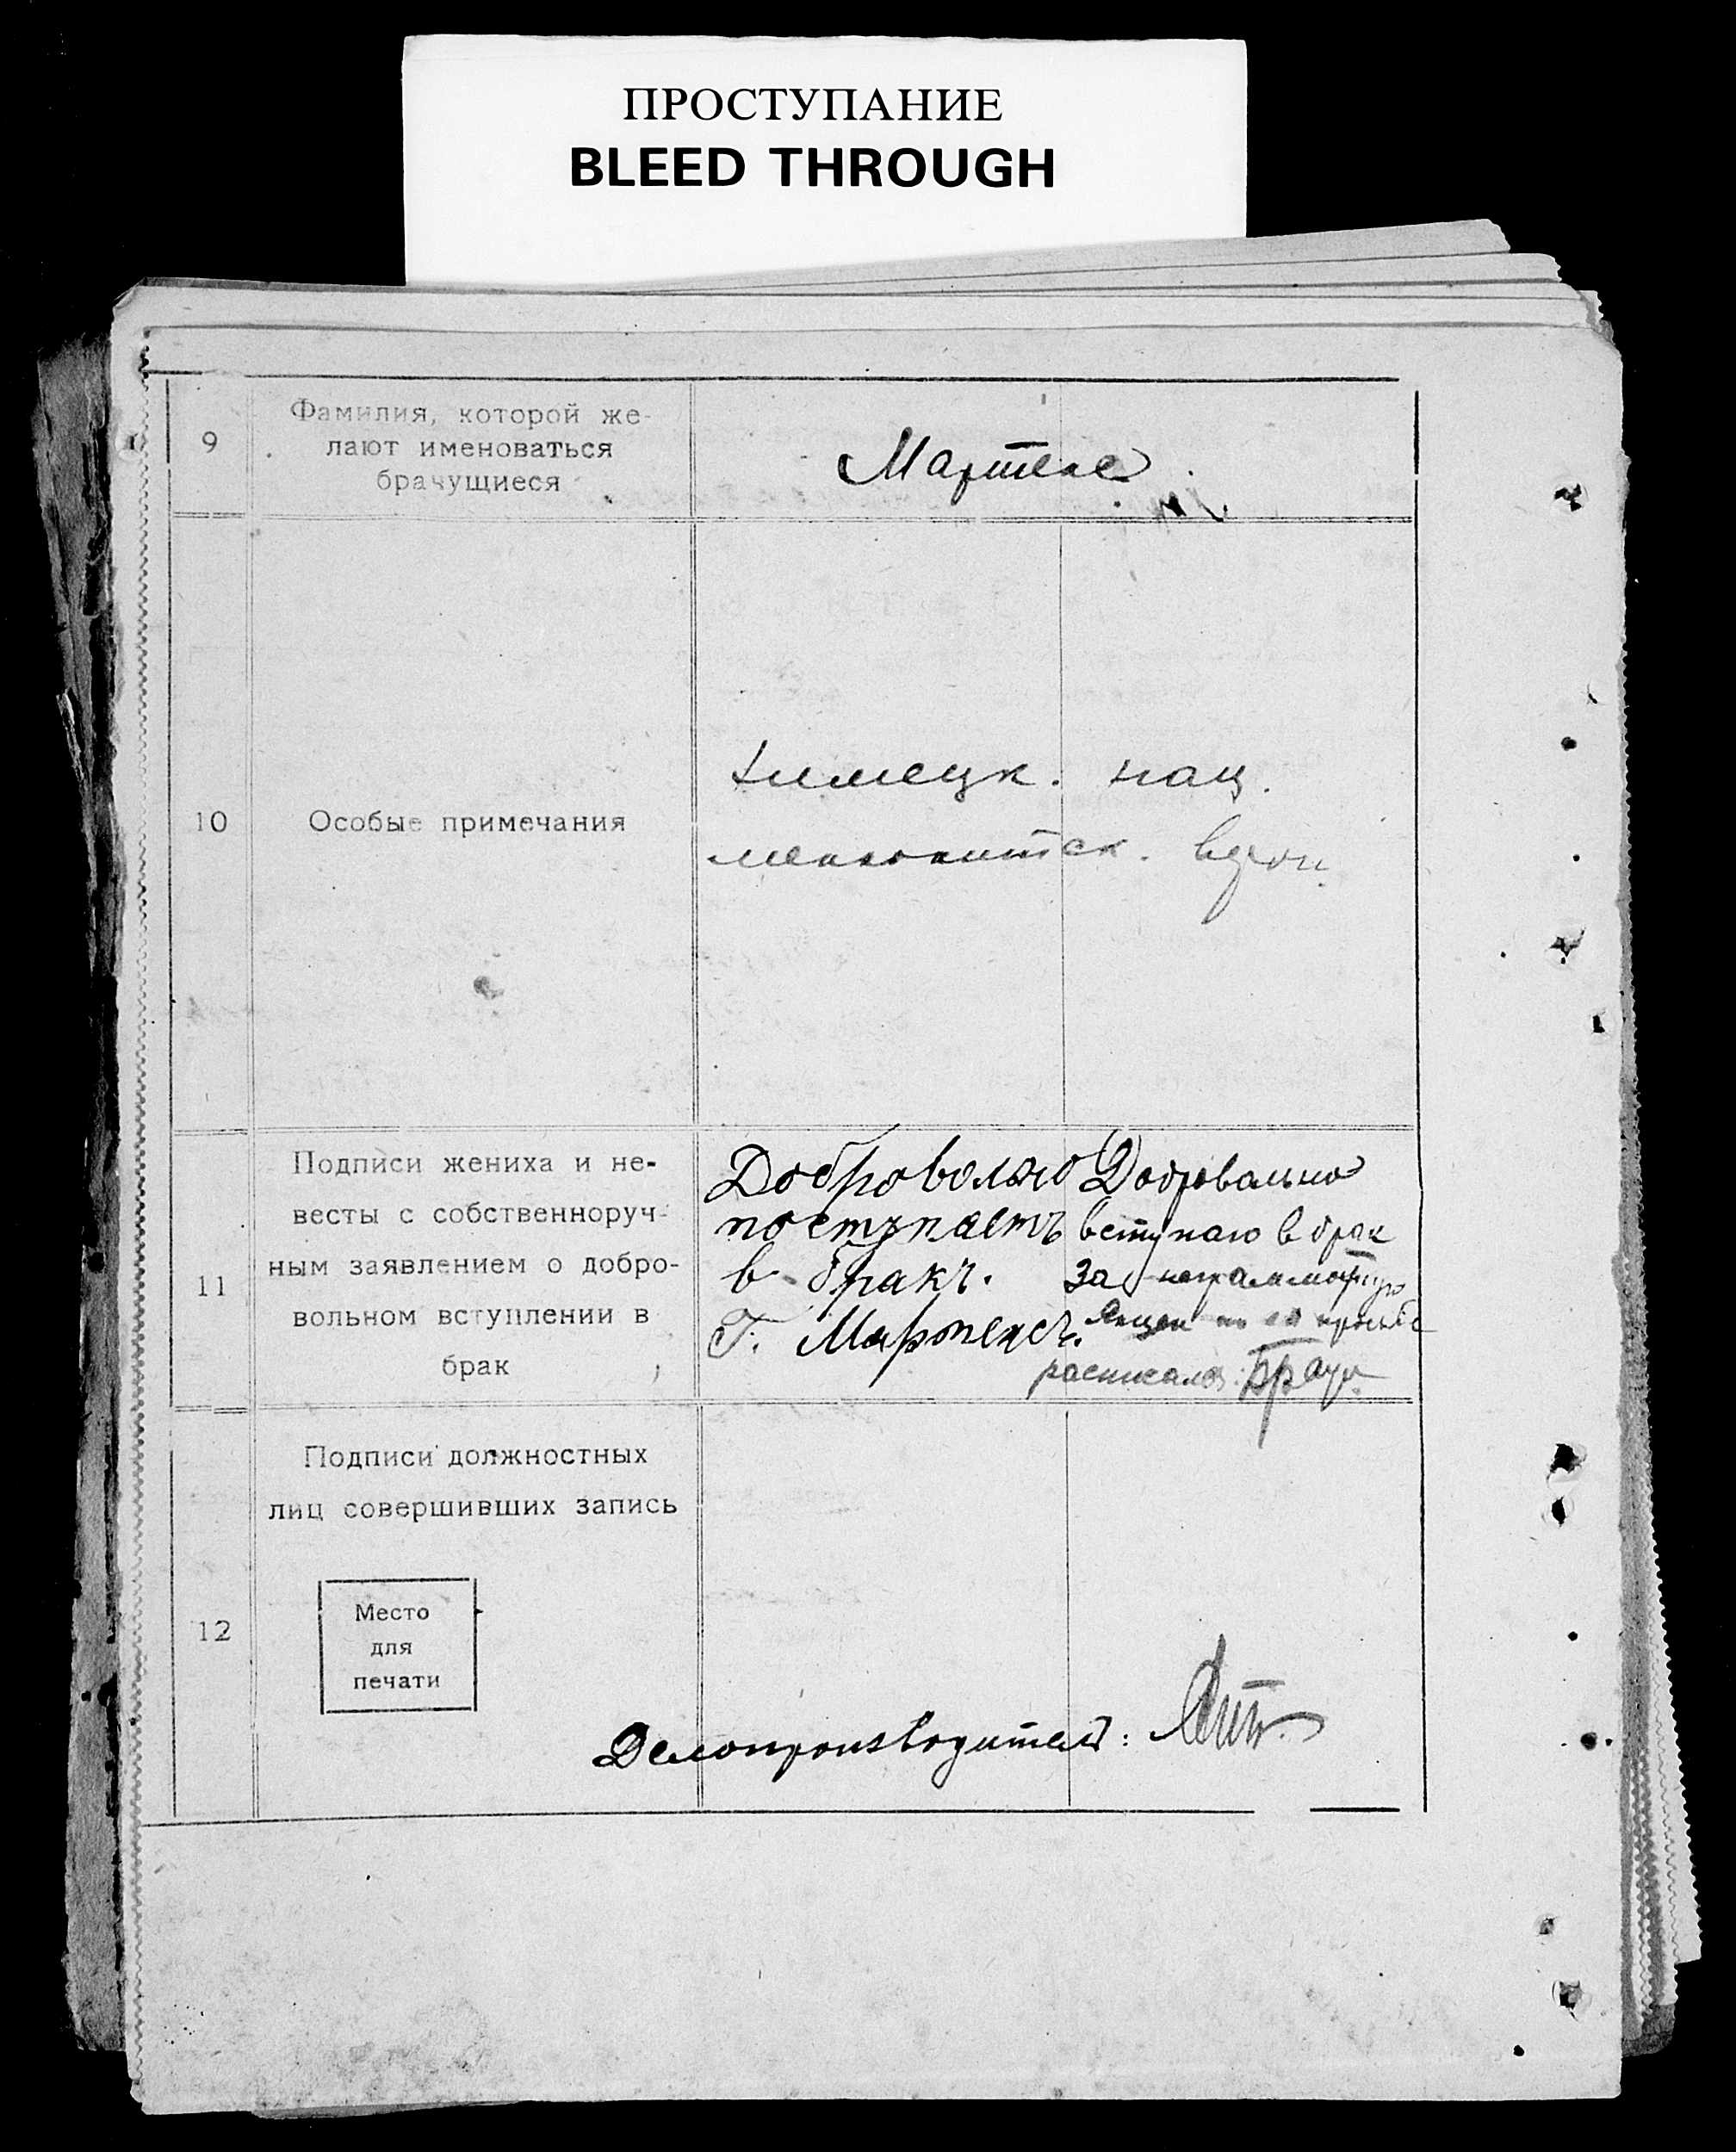 ПРОСТУПАНИЕ
BLEED THROUGH
9
Фамилия, которой же-
лают именоваться
брачущиеся
Мартенс
10
Особые примечания
немецк. нац.
менонитск.
11
Подписи жениха и не-
весты с собственноруч-
ным заявлением о добро-
вольном вступлении в
брак
Добровольно
поступаетъ
в бракъ.
Г. Мартенсъ.
Добровально
вступаю в брак
за неграмотную
по ее просьбе
расписался: Браун
12
Подписи должностных
лиц совершивших запись
Место
для
печати
Делопроизводитель: